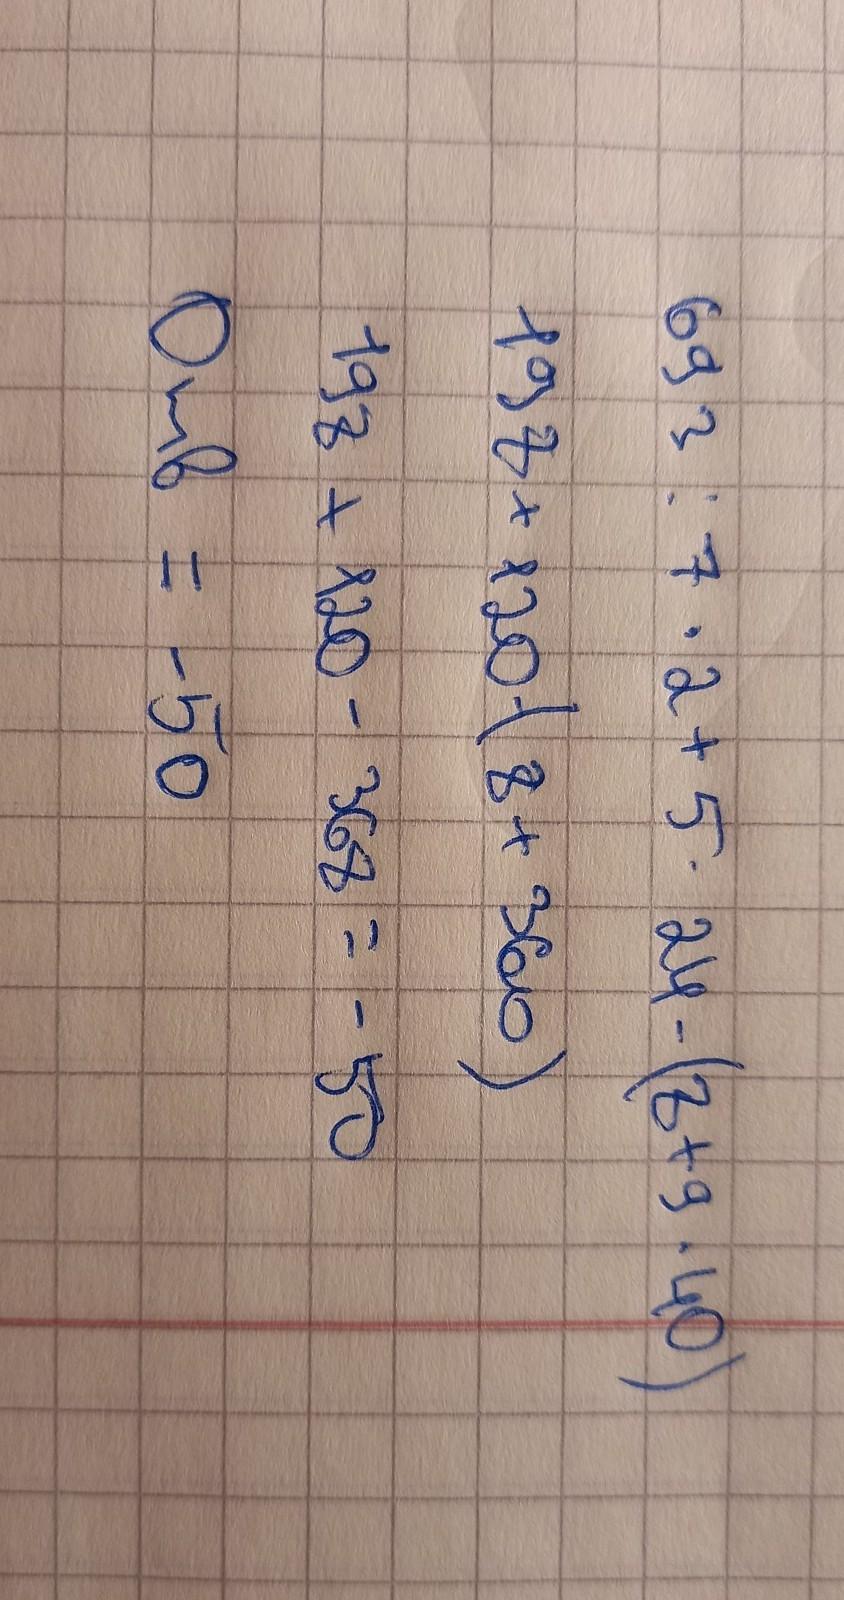 693 : 7 · 2 + 5 · 24 - (8 + 9 · 40)
198 + 120 - (8 + 360)
198 + 120 - 368 = - 50
Отв = - 50